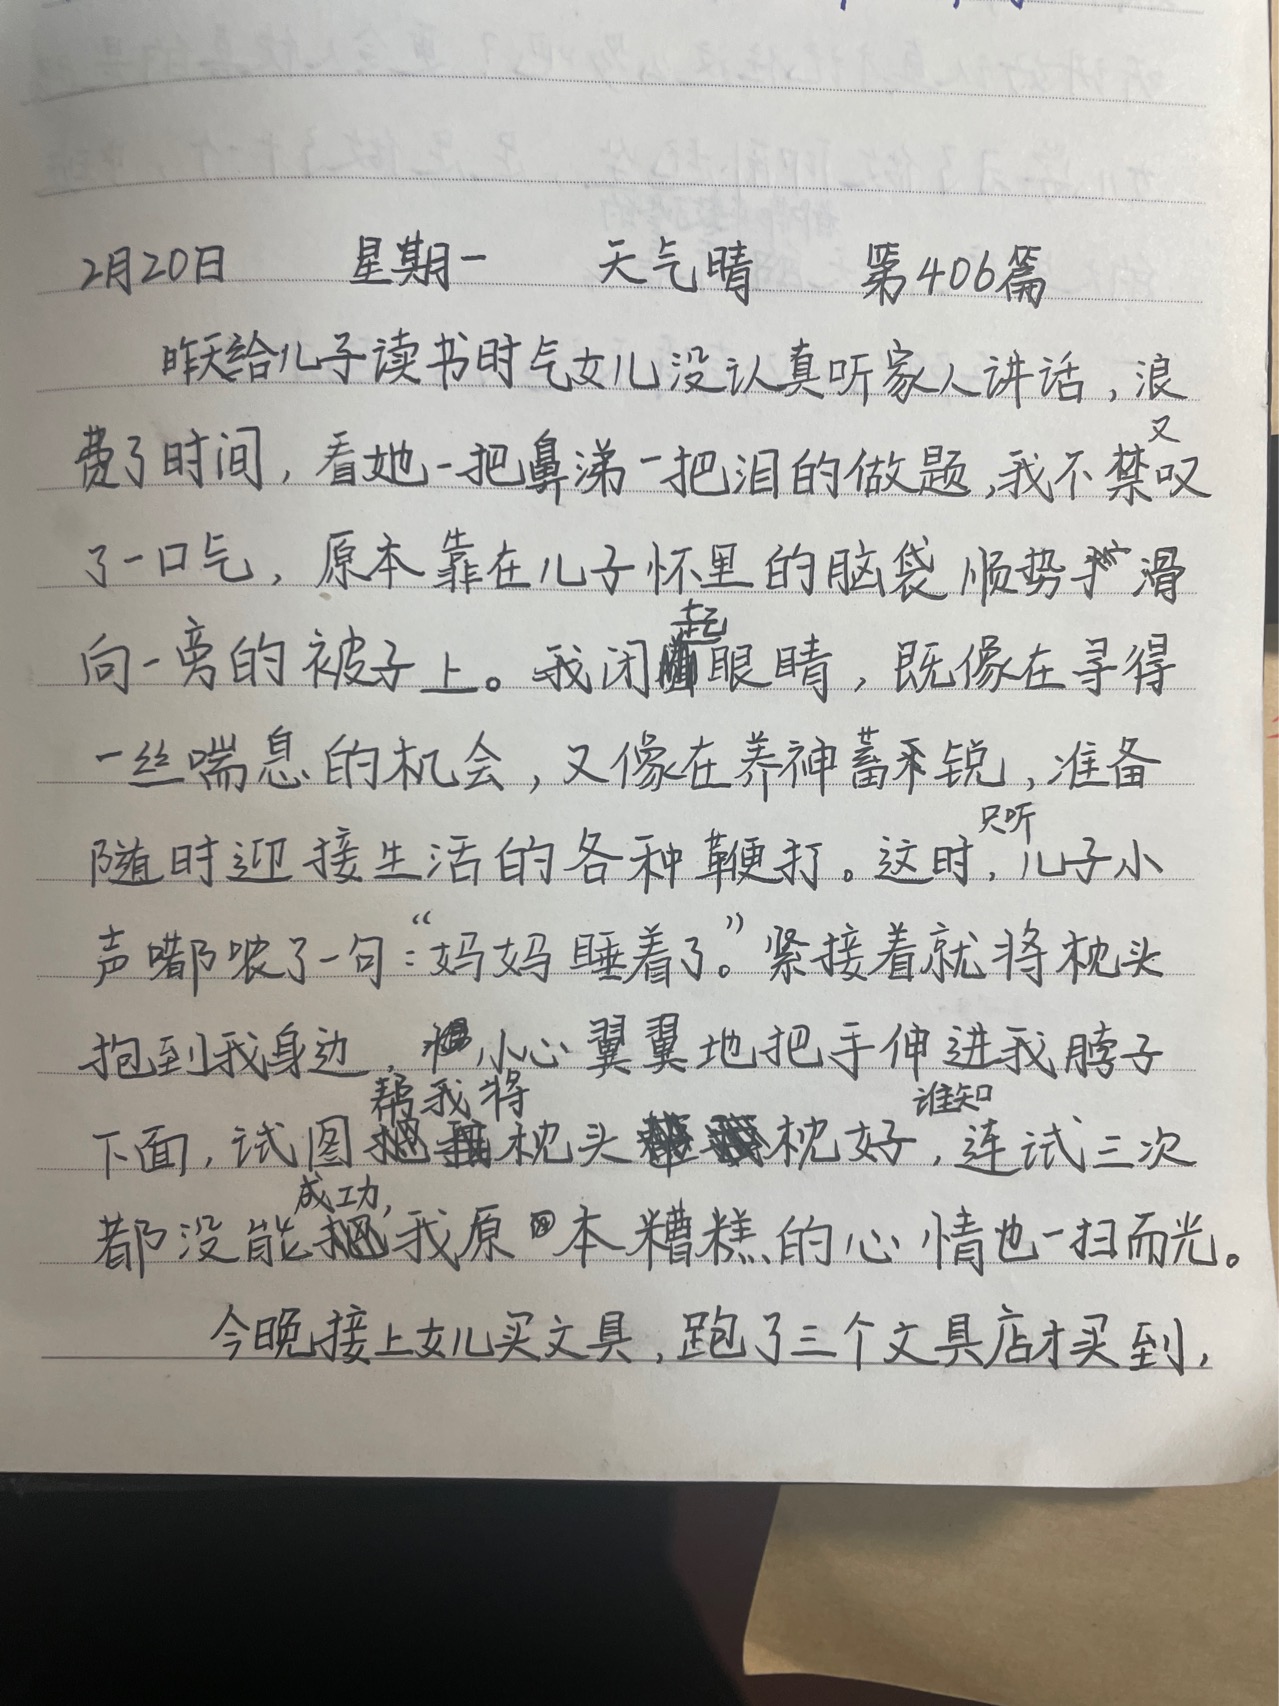 2月20日 星期一 天气晴 第406篇
昨天给儿子读书时气女儿没认真听家人讲话，浪
费了时间，看她一把鼻涕一把泪的做题，我不禁又叹
了一口气，原本靠在儿子怀里的脑袋顺势滑
向一旁的被子上。我闭起眼睛，既像在寻得
一丝喘息的机会，又像在养神蓄锐，准备
随时迎接生活的各种鞭打。这时，只听儿子小
声嘟哝了一句：“妈妈睡着了。”紧接着就将枕头
抱到我身边，小心翼翼地把手伸进我脖子
下面，试图帮我将枕头枕好，谁知连试三次
都没能成功，我原本糟糕的心情也一扫而光。
今晚接上女儿买文具，跑了三个文具店才买到，